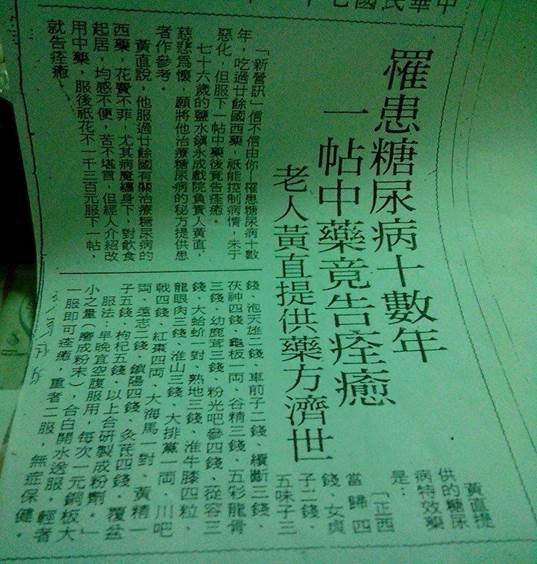 中華民國七十
罹患糖尿病十數年
一帖中藥竟告痊癒
老人黃直提供藥方濟世
「新營訊」信不信由你—罹患糖尿病十數
年，吃過廿餘國西藥，祇能控制病情，未予
惡化，但服下一帖中藥後竟告痊癒。
七十六歲的鹽水鎮永成戲院負責人黃直，
慈悲為懷，願將他治療糖尿病的秘方提供患
者作參考。
黃直說，他服過廿餘國有關治療糖尿病的
西藥，花費不菲，尤其病魔纏身下，對飲食
起居，均感不便，苦不堪言，但經人介紹改
用中藥，服後祇花不一千三百元服下一帖，
就告痊癒。
黃直提
供的糖尿
病特效藥
是：
「正西
當歸四
錢、女貞
子二錢、
五味子三
錢、泡天雄二錢、車前子二錢、續斷三錢、
茯神四錢、龜板一両、谷精三錢、五彩龍骨
三錢、幼鹿茸三錢、粉光吧參四錢、從容三
錢、大蛤蚧一對、熟地三錢、淮牛膝四粒、
龍眼肉三錢、淮山三錢、大排黨一両、川吧
戟四錢、紅棗四両、大海馬一對、黃精一
両、遠志二錢、鎖陽四錢、炙芪四錢、覆盆
子五錢、枸杞五錢、以上合研製成粉劑。」
服法：早晚宜空腹服用，每次一元銅板大
小之量（磨成粉末），合白開水送服，輕者
一服即可痊癒，重者二服，無症保健。